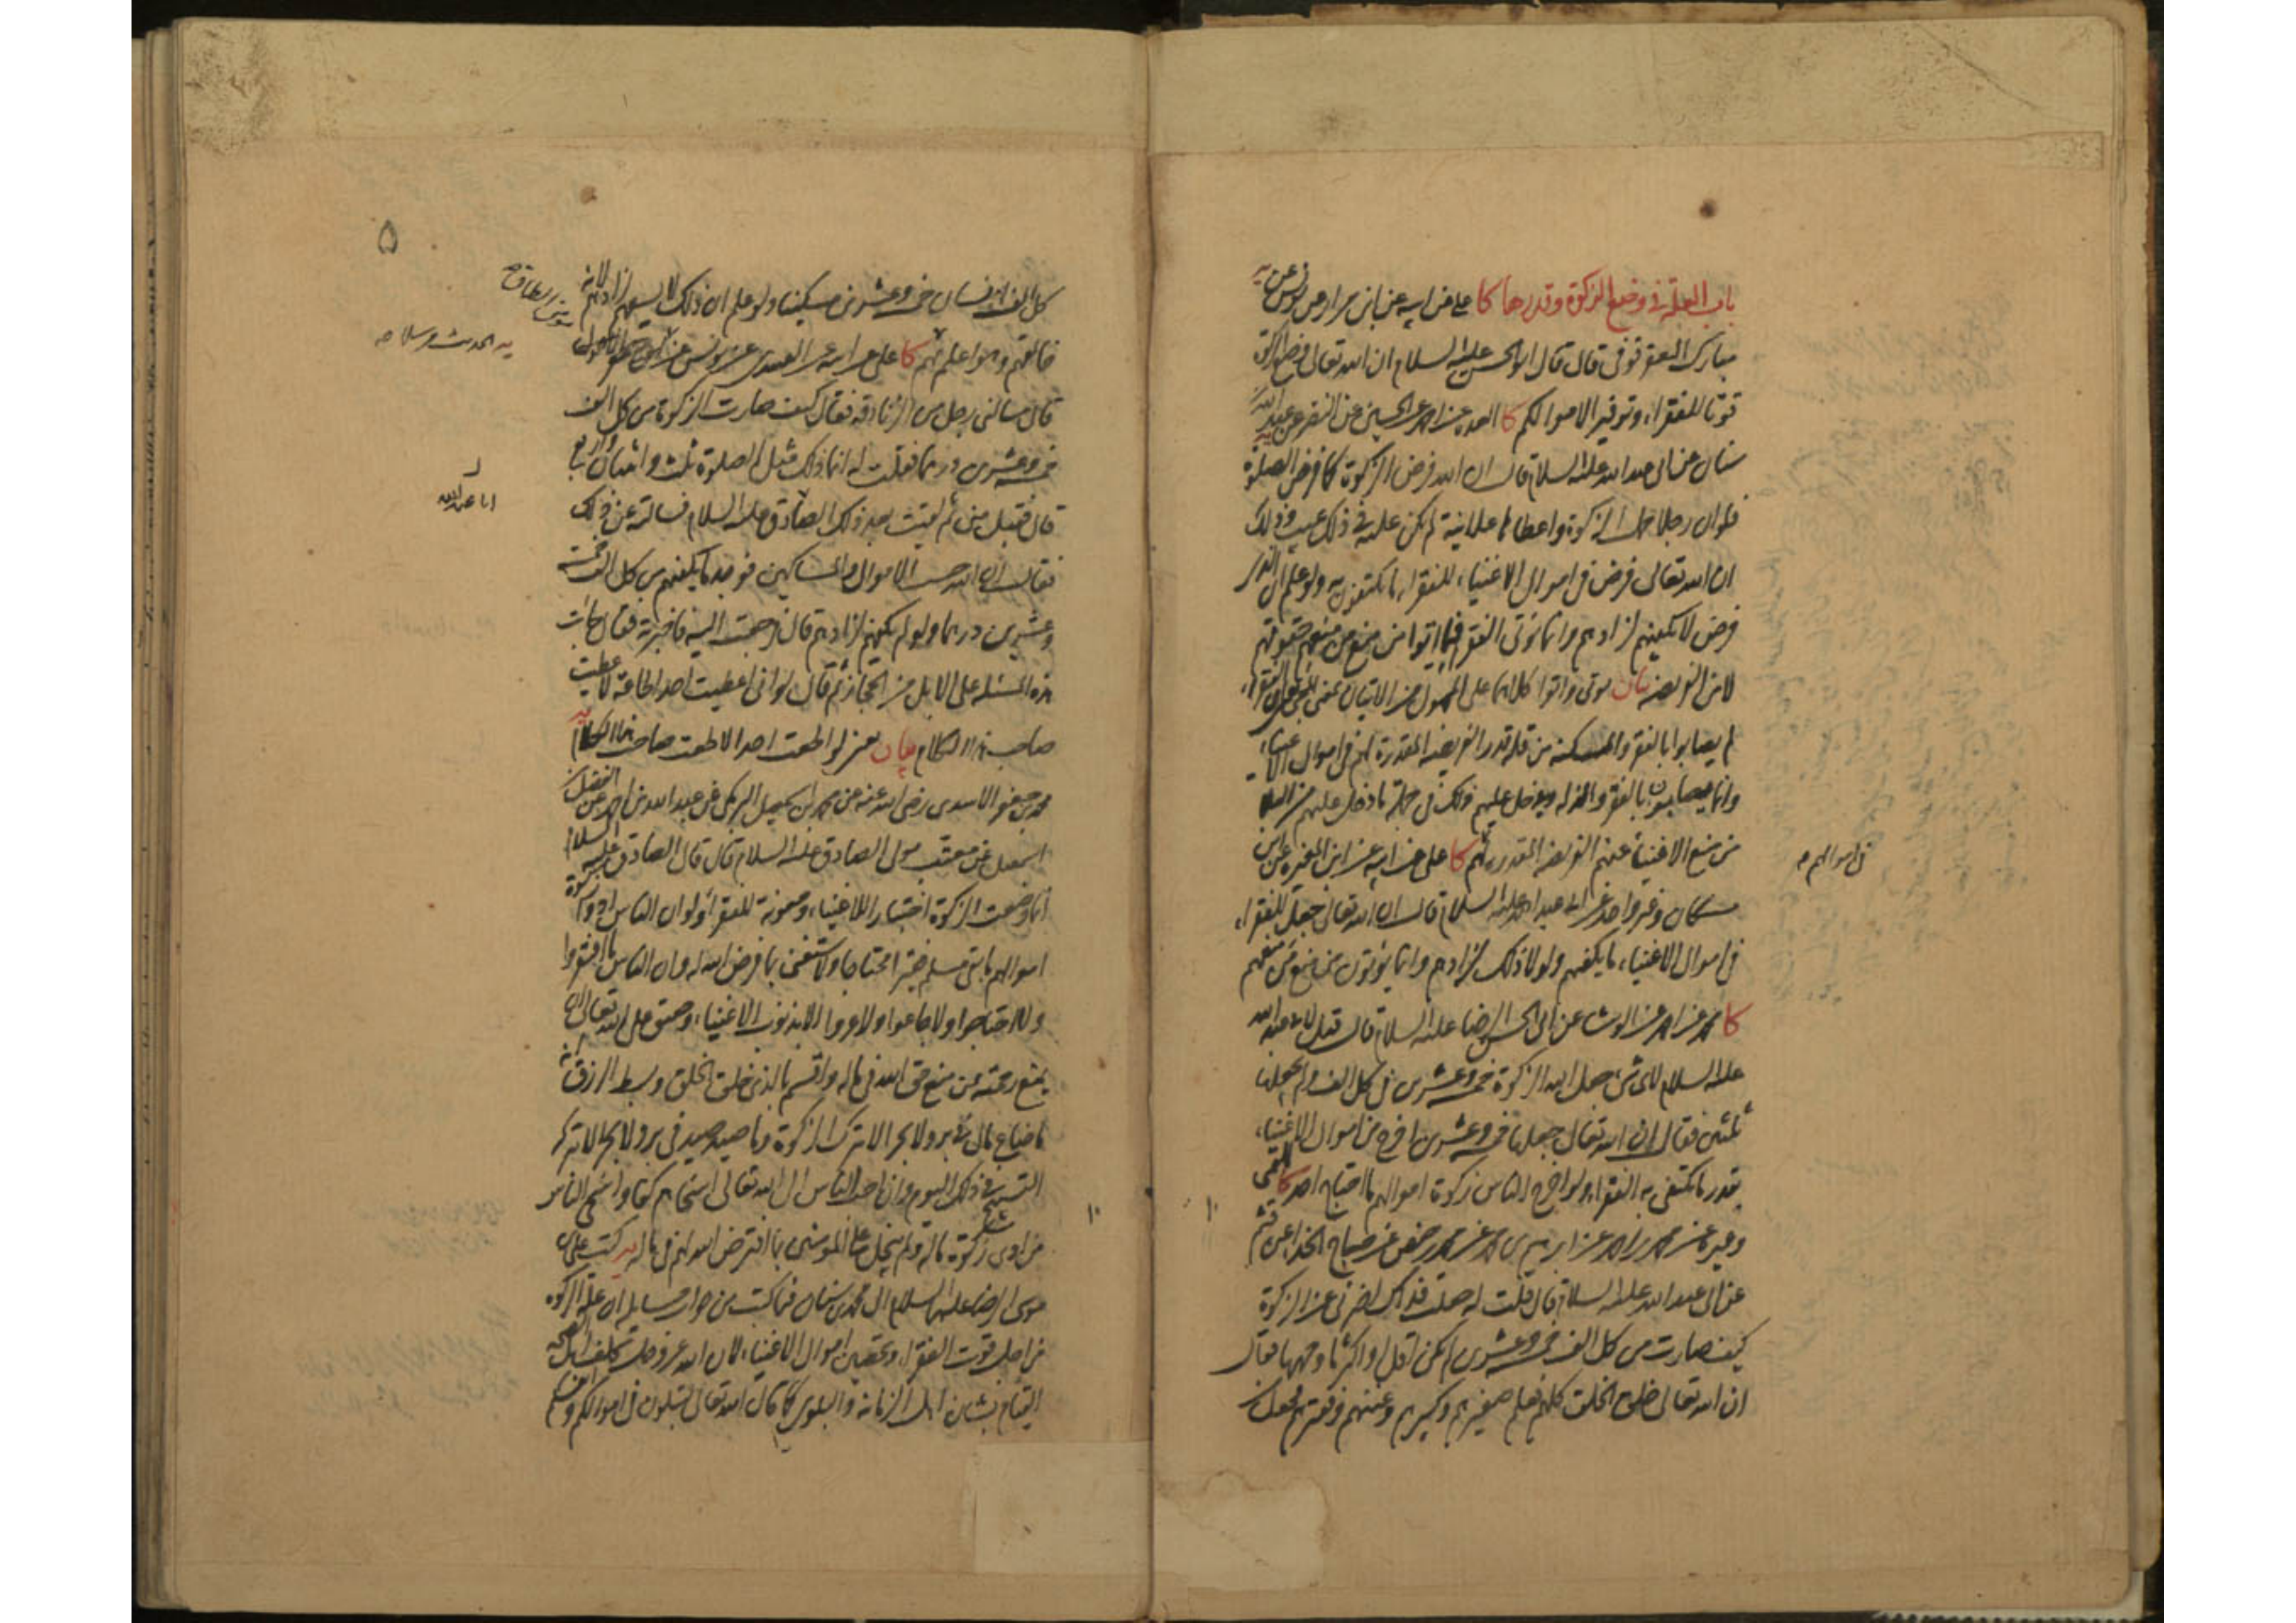 باب العلة في وضع الزكوة وقدرها كا علي عن ابيه عن ابن مرار عن يونس عن
مبارك العقرقوفي قال قال ابو الحسن عليه السلام ان الله تعالى وضع الزكوة
قوتا للفقراء وتوفيرا لاموالكم كا العدة عن احمد عن الحسين عن النضر عن عبد الله
سنان عن ابي عبد الله عليه السلام قال ان الله فرض الزكوة كما فرض الصلوة
فلو ان رجلا حمل الزكوة واعطاها علانية لم يكن عليه في ذلك عيب وذلك
ان الله تعالى فرض في اموال الاغنياء للفقراء ما يكتفون به ولو علم ان الذي
فرض لا يكفيهم لزادهم وانما يؤتى الفقراء فيما اتوا من منع من منعهم حقوقهم
لا من الفريضة بيان يؤتى واتوا كلاهما على المجهول من الاتيان بمعنى المجيء يعني ان الفقراء
لم يصابوا بالفقر والمسكنة من قلة قدر الفريضة المقدرة لهم في اموال الاغنياء
وانما يصابون بالفقر والذلة ويدخل عليهم ذلك في جملة ما دخل عليهم من البلاء
من منع الاغنياء عنهم الفريضة المقدرة لهم كا علي عن ابيه عن ابن المغيرة عن ابن
في اموالهم
مسكان وغير واحد عن ابي عبد الله عليه السلام قال ان الله تعالى جعل للفقراء
في اموال الاغنياء ما يكفيهم ولولا ذلك لزادهم وانما يؤتون من منع من منعهم
كا محمد عن احمد عن الوشاء عن ابي الحسن الرضا عليه السلام قال قيل لابي عبد الله
عليه السلام لاي شيء جعل الله الزكوة خمسة وعشرين في كل الف ولم يجعلها
ثلثين فقال ان الله تعالى جعلها خمسة وعشرين اخرج من اموال الاغنياء
بقدر ما يكتفي به الفقراء ولو اخرج الناس زكوة اموالهم ما احتاج احد كا القمي
وغيره عن محمد بن احمد عن ابرهيم بن محمد عن محمد بن حفص عن صباح الحذاء عن قثم
عن ابي عبد الله عليه السلام قال قلت له جعلت فداك اخبرني عن الزكوة
كيف صارت من كل الف خمسة وعشرين لم يكن اقل او اكثر ما وجهها فقال
ان الله تعالى خلق الخلق كلهم فعلم صغيرهم وكبيرهم وغنيهم وفقيرهم فجعل
۵
كل الف انسان خمسة وعشرين مسكينا ولو علم ان ذلك لا يسعهم لزادهم لانه
خالقهم وهو اعلم بهم كا علي عن ابيه عن العبيدي عن يونس عن ابي جعفر الاحول
مؤمن الطاق
يه الحديث مرسلا
قال سالني رجل من الزنادقة فقال كيف صارت الزكوة من كل الف
خمسة وعشرين درهما فقلت له انما ذلك مثل الصلوة ثلث واثنتان واربع
قال فقبل مني ثم لقيت بعد ذلك الصادق عليه السلام فسالته عن ذلك
ابا عبد الله
فقال ان الله حسب الاموال والمساكين فوجد ما يكفيهم من كل الف خمسة
وعشرين درهما ولو لم يكفهم لزادهم قال فرجعت اليه فاخبرته فقال جاءت
هذه المسئلة على الابل من الحجاز ثم قال لو اني اعطيت احدا طاعة لاعطيت
صاحب هذا الكلام بيان يعني لو اطعت احدا لاطعت صاحب هذا الكلام يه
محمد بن جعفر الاسدي رضي الله عنه عن محمد بن اسمعيل البرمكي عن عبد الله بن احمد عن الفضل بن
اسمعيل عن معتب مولى الصادق عليه السلام قال قال الصادق عليه السلام
انما وضعت الزكوة اختبارا للاغنياء ومعونة للفقراء ولو ان الناس ادوا زكوة
اموالهم ما بقي مسلم فقيرا محتاجا ولاستغنى بما فرض الله له وان الناس ما افتقروا
ولا احتاجوا ولا جاعوا ولا عروا الا بذنوب الاغنياء وحقيق على الله تعالى ان
يمنع رحمته ممن منع حق الله في ماله واقسم بالذي خلق الخلق وبسط الرزق انه
ما ضاع مال في بر ولا بحر الا بترك الزكوة وما صيد صيد في بر ولا بحر الا بتركه
التسبيح في ذلك اليوم وان احب الناس الى الله تعالى اسخاهم كفا واسخى الناس
من ادى زكوة ماله ولم يبخل على المؤمنين بما افترض الله لهم في ماله يه كتب علي بن
موسى الرضا عليهما السلام الى محمد بن سنان فيما كتب من جواب مسايله ان علة الزكوة
من اجل قوت الفقراء وتحصين اموال الاغنياء لان الله عز وجل كلف اهل الصحة
القيام بشان اهل الزمانة والبلوى كما قال الله تعالى لتبلون في اموالكم وانفسكم